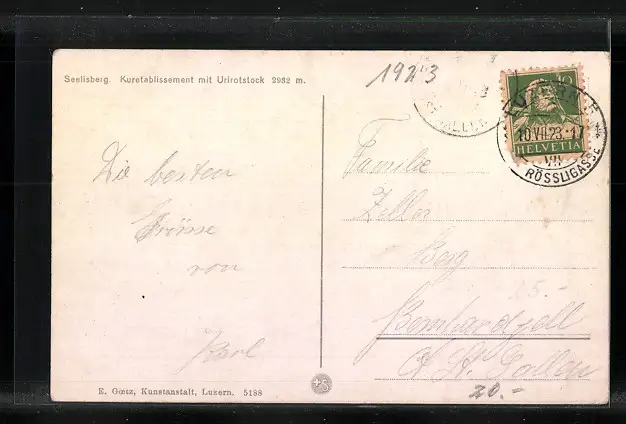 Seelisberg. Kuretablissement mit Urirotstock 2932 m.
Die besten
Grüsse
von
Karl
E. Gœtz, Kunstanstalt, Luzern. 5188
1923
10
HELVETIA
LUZERN
10.VII.23.-17
VII
RÖSSLIGASSE
Familie
Zeller
Berg
St. Gallen
20.-